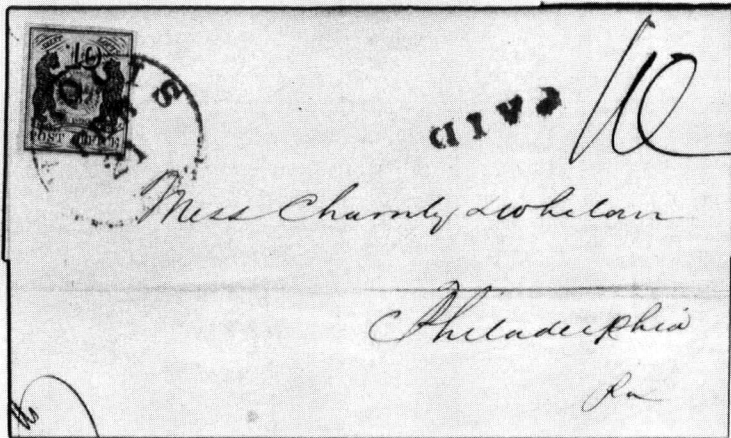 10
SAINT LOUIS
POST OFFICE
PAID
10
Mess Charnly & Whelan
Philadelphia
Pa